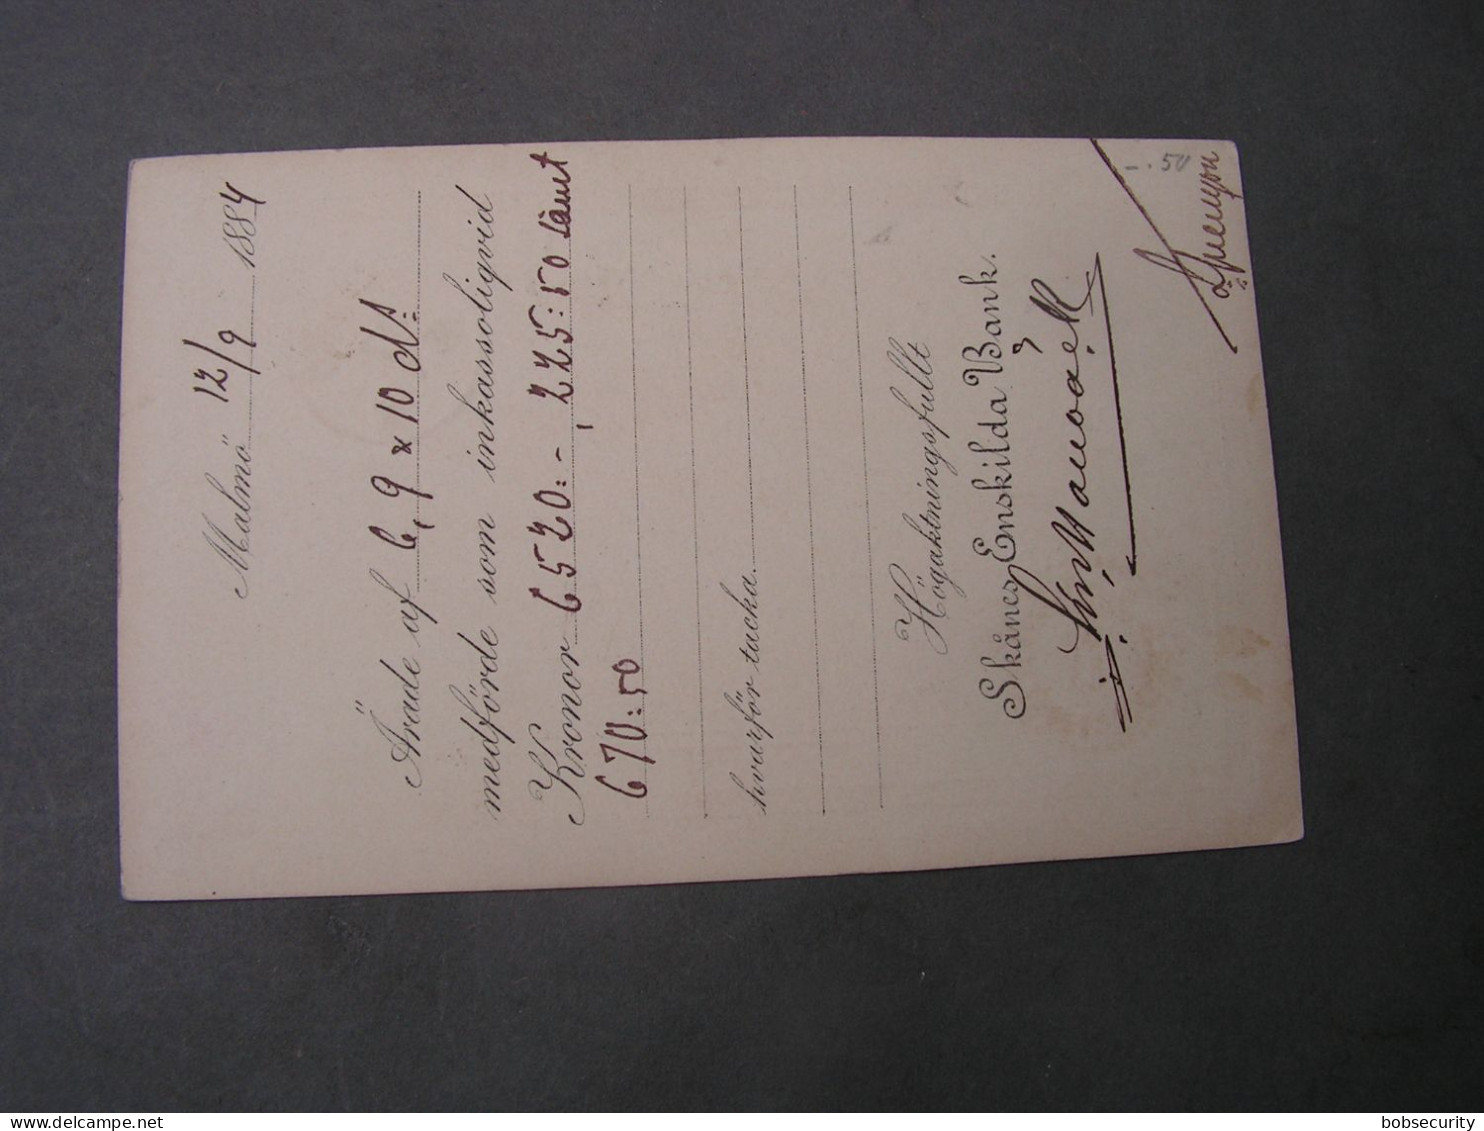 Malmö 12/9 1884
Ärade af 6, 9 x 10 ds:
medförde som inkassoliqvid
Kronor 6520:-, 225:50 samt
670:50
hvarför tacka.
Högaktningsfullt
Skånes Enskilda Bank.
-.50
bobsecurity